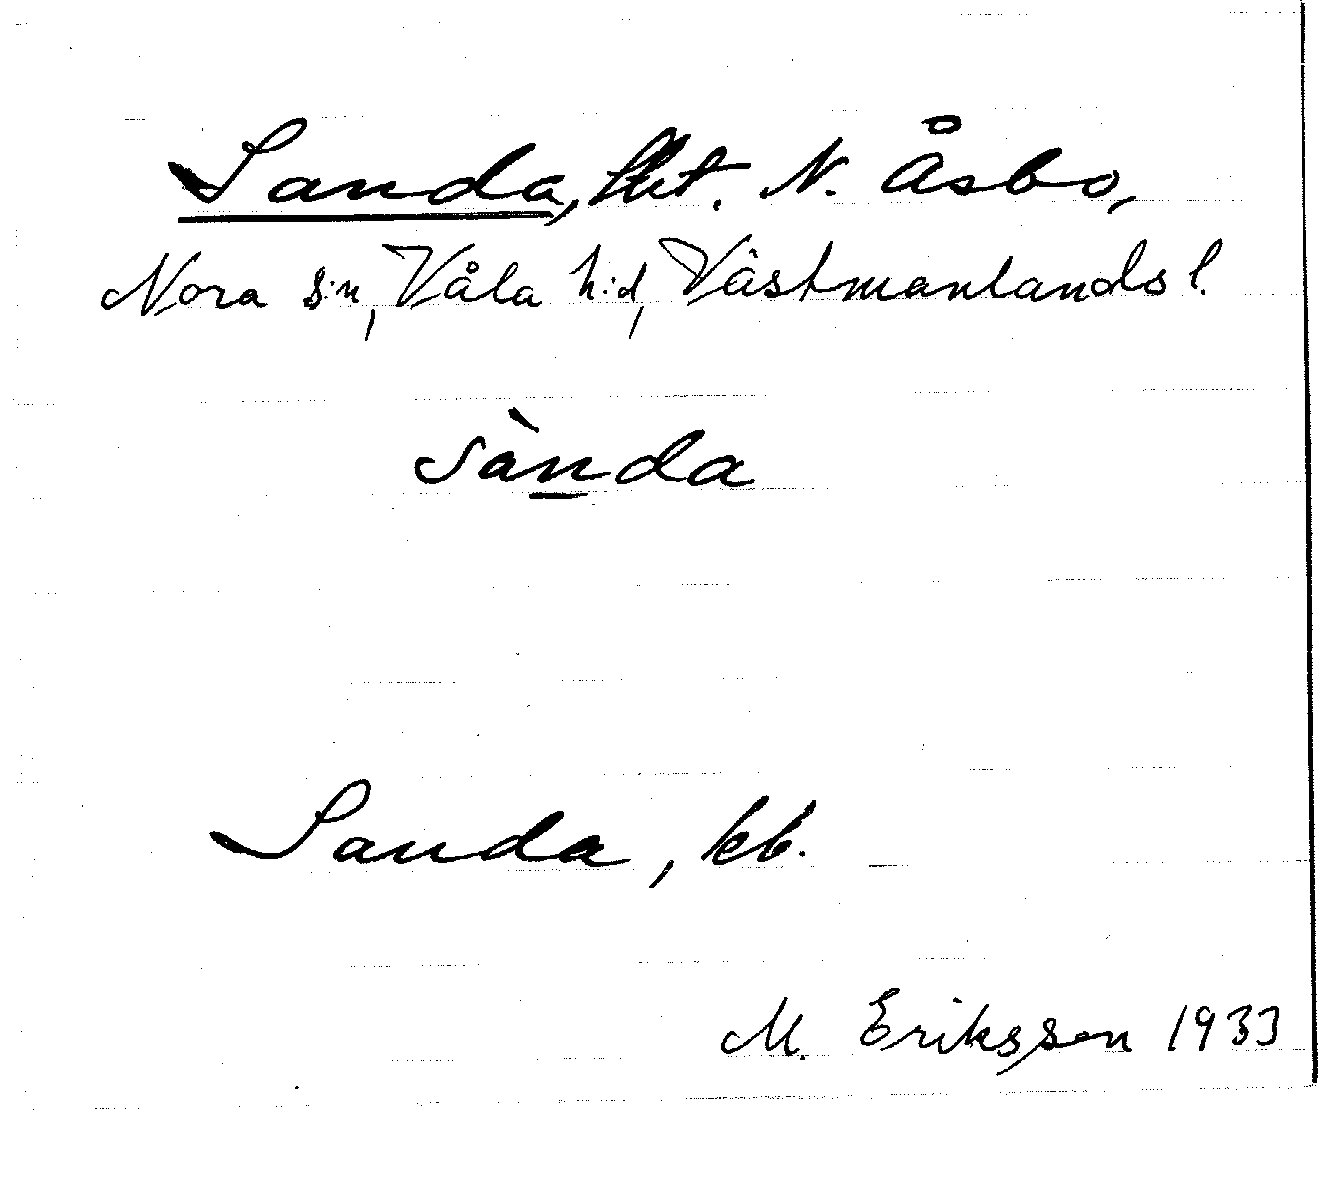 Sanda, tht. N. Åsbo,
Nora s:n, Våla h:d, Västmanlands l.
sànda
Sanda, kb.
M. Eriksson 1933